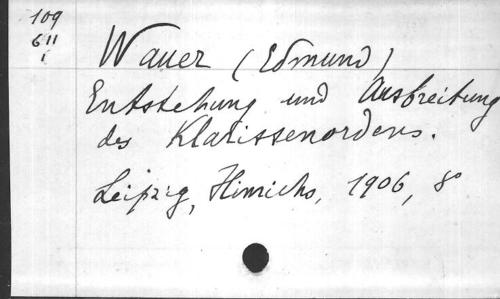 109
611
i
Wauer (Edmund)
Entstehung und Ausbreitung
des Klarissenordens.
Leipzig, Hinrichs, 1906, 8°